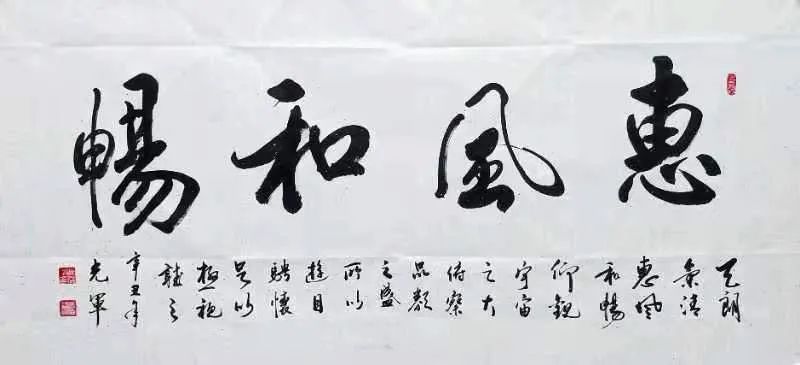 惠風和暢
天朗
氣清
惠風
和暢
仰觀
宇宙
之大
俯察
品類
之盛
所以
遊目
騁懷
足以
極視
聽之
辛丑年
光軍